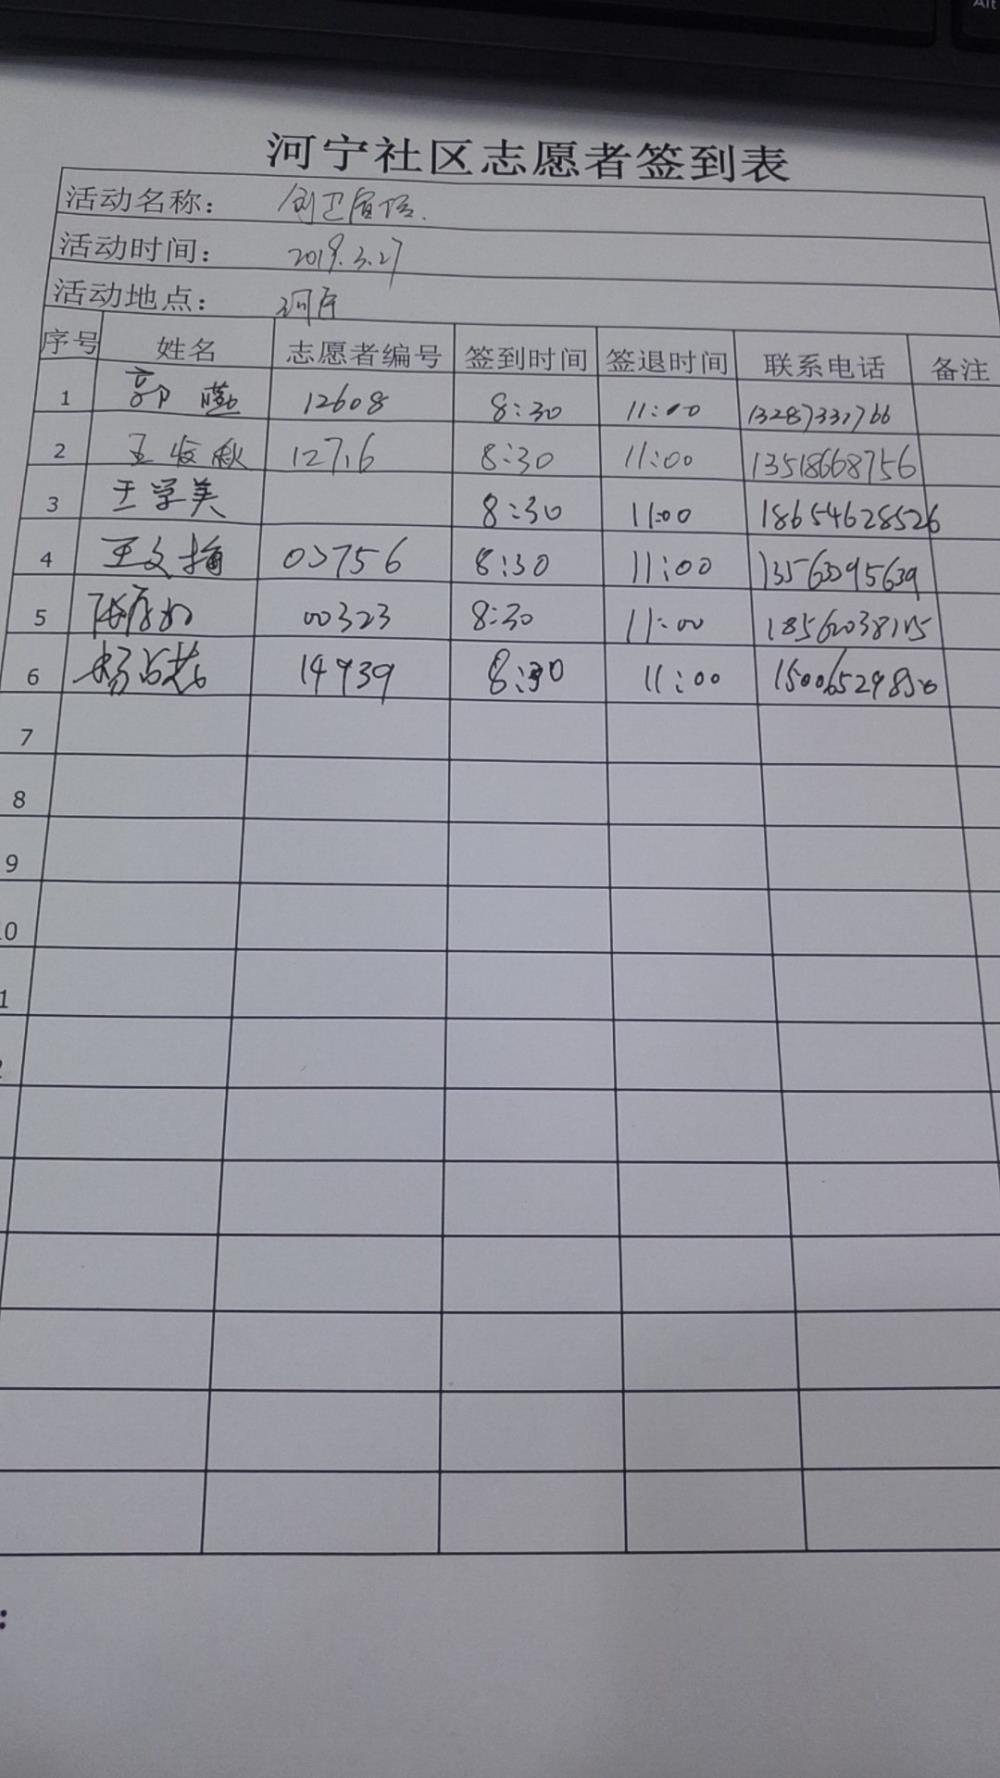 Alt
河宁社区志愿者签到表
活动名称： 创卫宣传.
活动时间： 2019.3.27
活动地点： 河宁
序号 姓名 志愿者编号 签到时间 签退时间 联系电话 备注
1 郭 12608 8:30 11:00 13287331766
2 王 秋 12716 8:30 11:00 13518668756
3 王学美 8:30 11:00 18654628526
4 王文梅 03756 8:30 11:00 13563095639
5 00323 8:30 11:00
6 杨 14939 8:30 11:00 15006529850
7
8
9
0
1
: